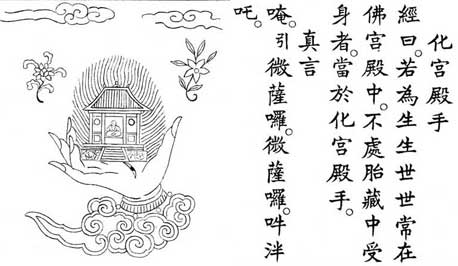 化宮殿手
經曰。若為生生世世常在
佛宮殿中。不處胎藏中受
身者。當於化宮殿手。
真言
唵。引微薩囉。微薩囉。吽泮
吒。